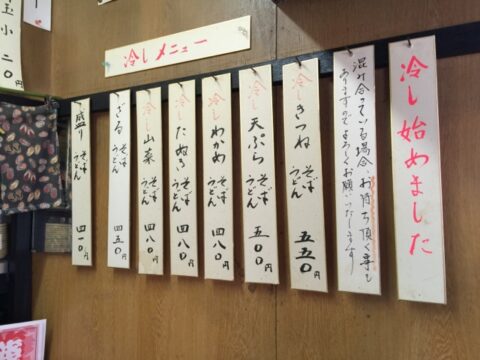 冷しメニュー
冷し始めました
混み合っている場合、お待ち頂く事も
ありますのでよろしくお願いいたします
冷し きつね そば うどん 五五〇円
冷し 天ぷら そば うどん 五〇〇円
冷し わかめ そば うどん 四八〇円
冷し たぬき そば うどん 四八〇円
冷し 山菜 そば うどん 四八〇円
ざる そば うどん 四五〇円
盛り そば うどん 四一〇円
玉小二〇円